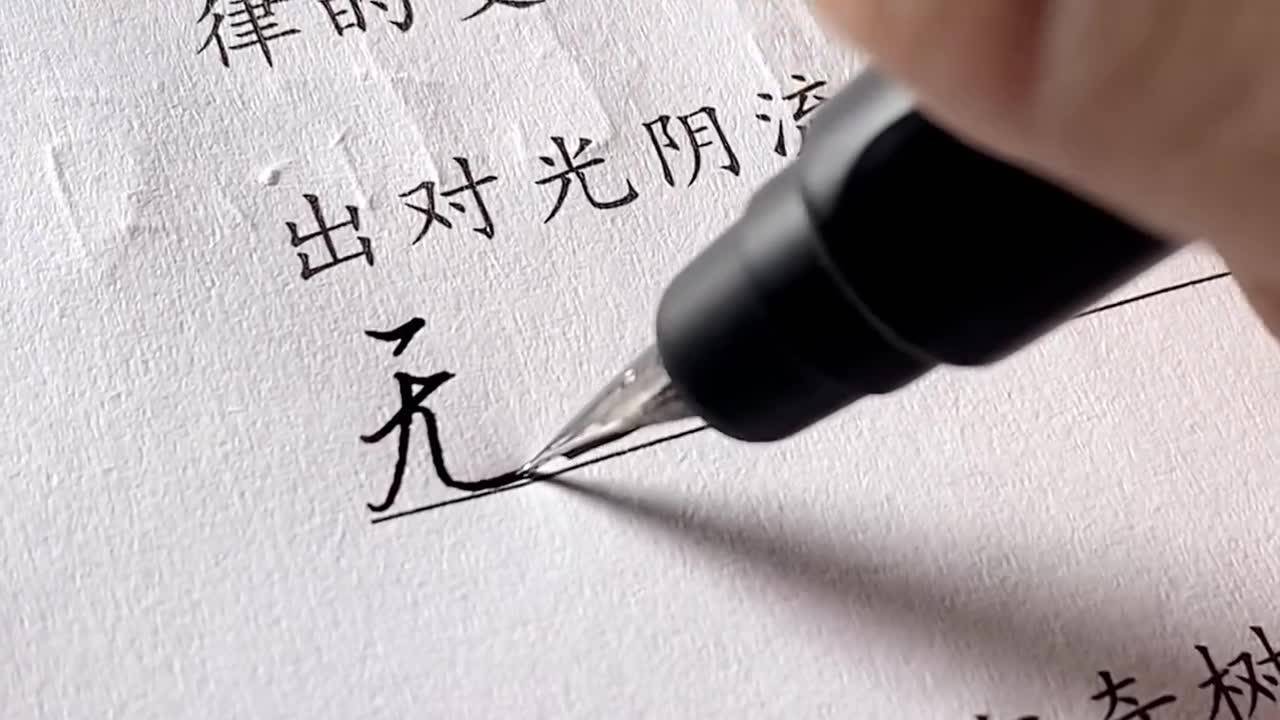 律的
出对光阴流
无
树